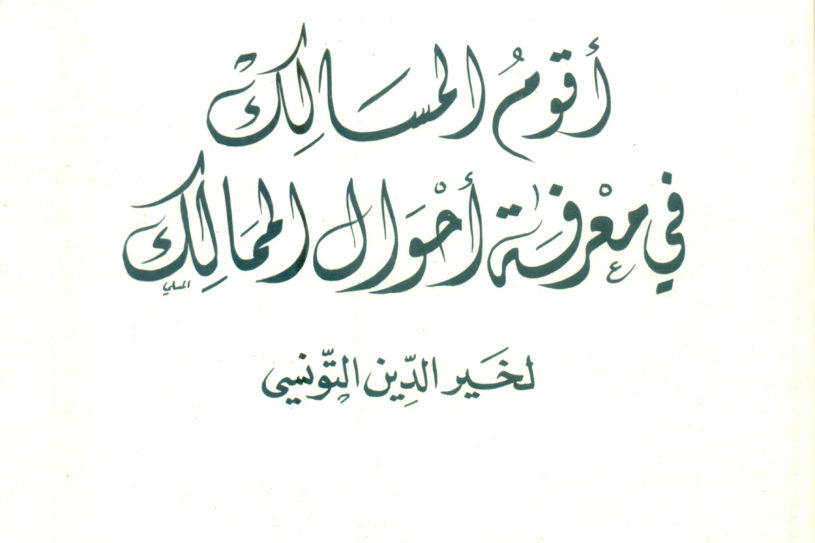 أقومُ المسَالِك
في معْرفَة أحْوَال الممَالِك
لخَير الدِّين التّونسي